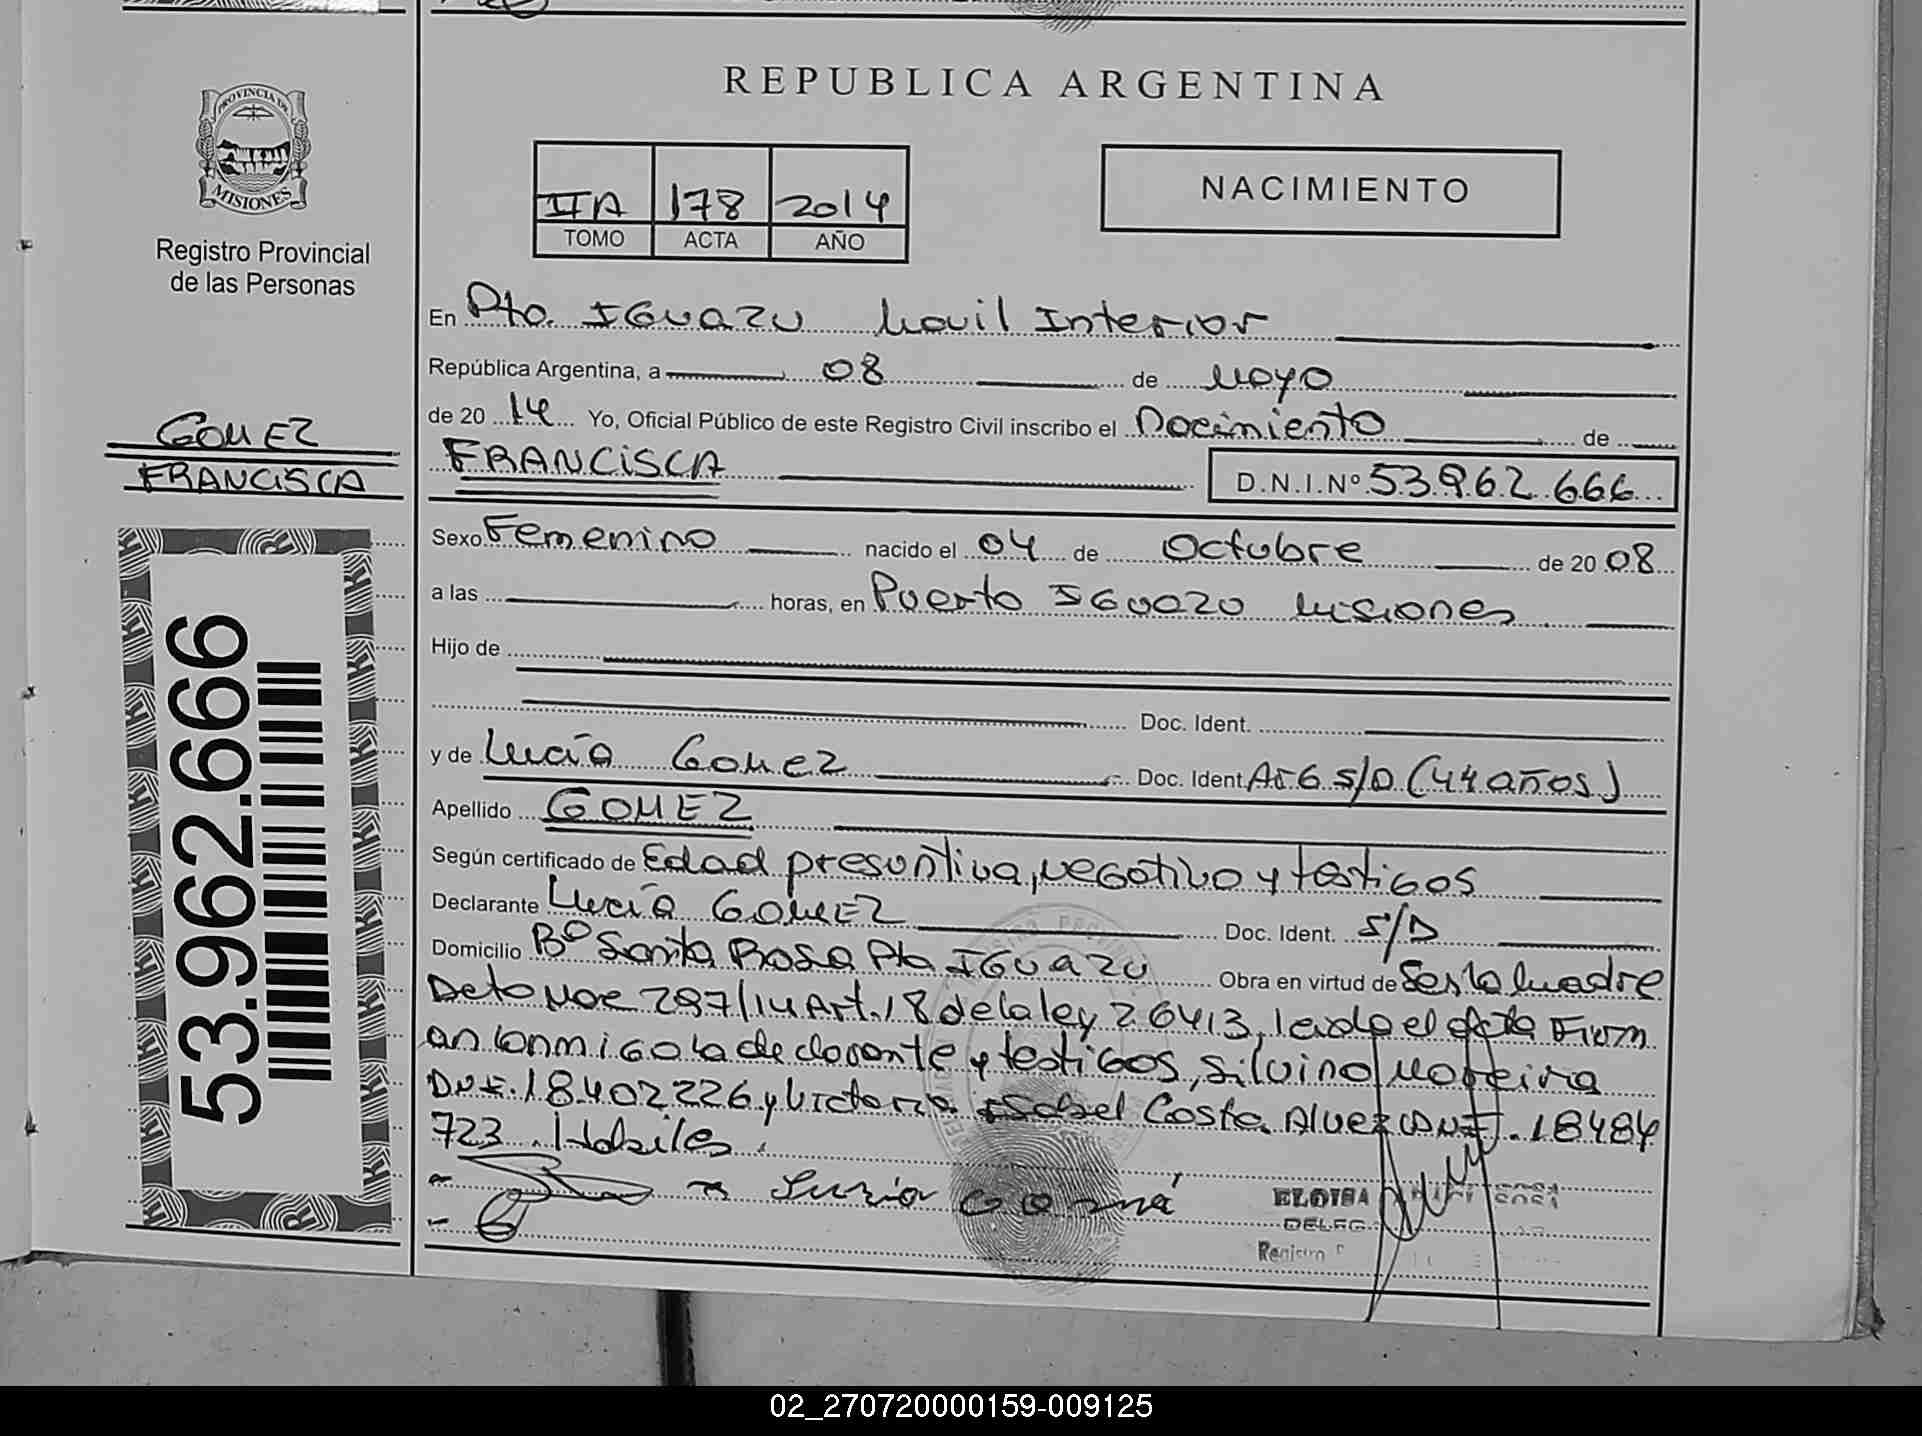 REPUBLICA ARGENTINA
PROVINCIA DE
MISIONES
Registro Provincial
de las Personas
IIA 178 2014
TOMO ACTA AÑO
NACIMIENTO
En Pto. IGUAZU Movil Interior
República Argentina, a 08 de Mayo
de 20 14 Yo, Oficial Público de este Registro Civil inscribo el Nacimiento de
GOMEZ
FRANCISCA
FRANCISCA D.N.I.Nº 53.962.666
Sexo Femenino nacido el 04 de Octubre de 20 08
a las horas, en Puerto IGUAZU Misiones
Hijo de
Doc. Ident.
y de Lucía Gomez Doc. Ident. ARG S/D (44 años)
Apellido GOMEZ
Según certificado de Edad presuntiva, negativo y testigos
Declarante Lucía GOMEZ Doc. Ident. S/D
Domicilio Bº Santa Rosa Pto IGUAZU Obra en virtud de Ser la Madre
Dcto Nº 297/14 Art. 18 de la ley 26413, leida el acta Firm
an conmigo la declarante y testigos, Silvino Moreira
DNI. 18402226 y Victoria Isabel Costa Alvez DNI. 18484
723. Habiles.
53.962.666
ELOISA
DELEG
Registro
02_270720000159-009125